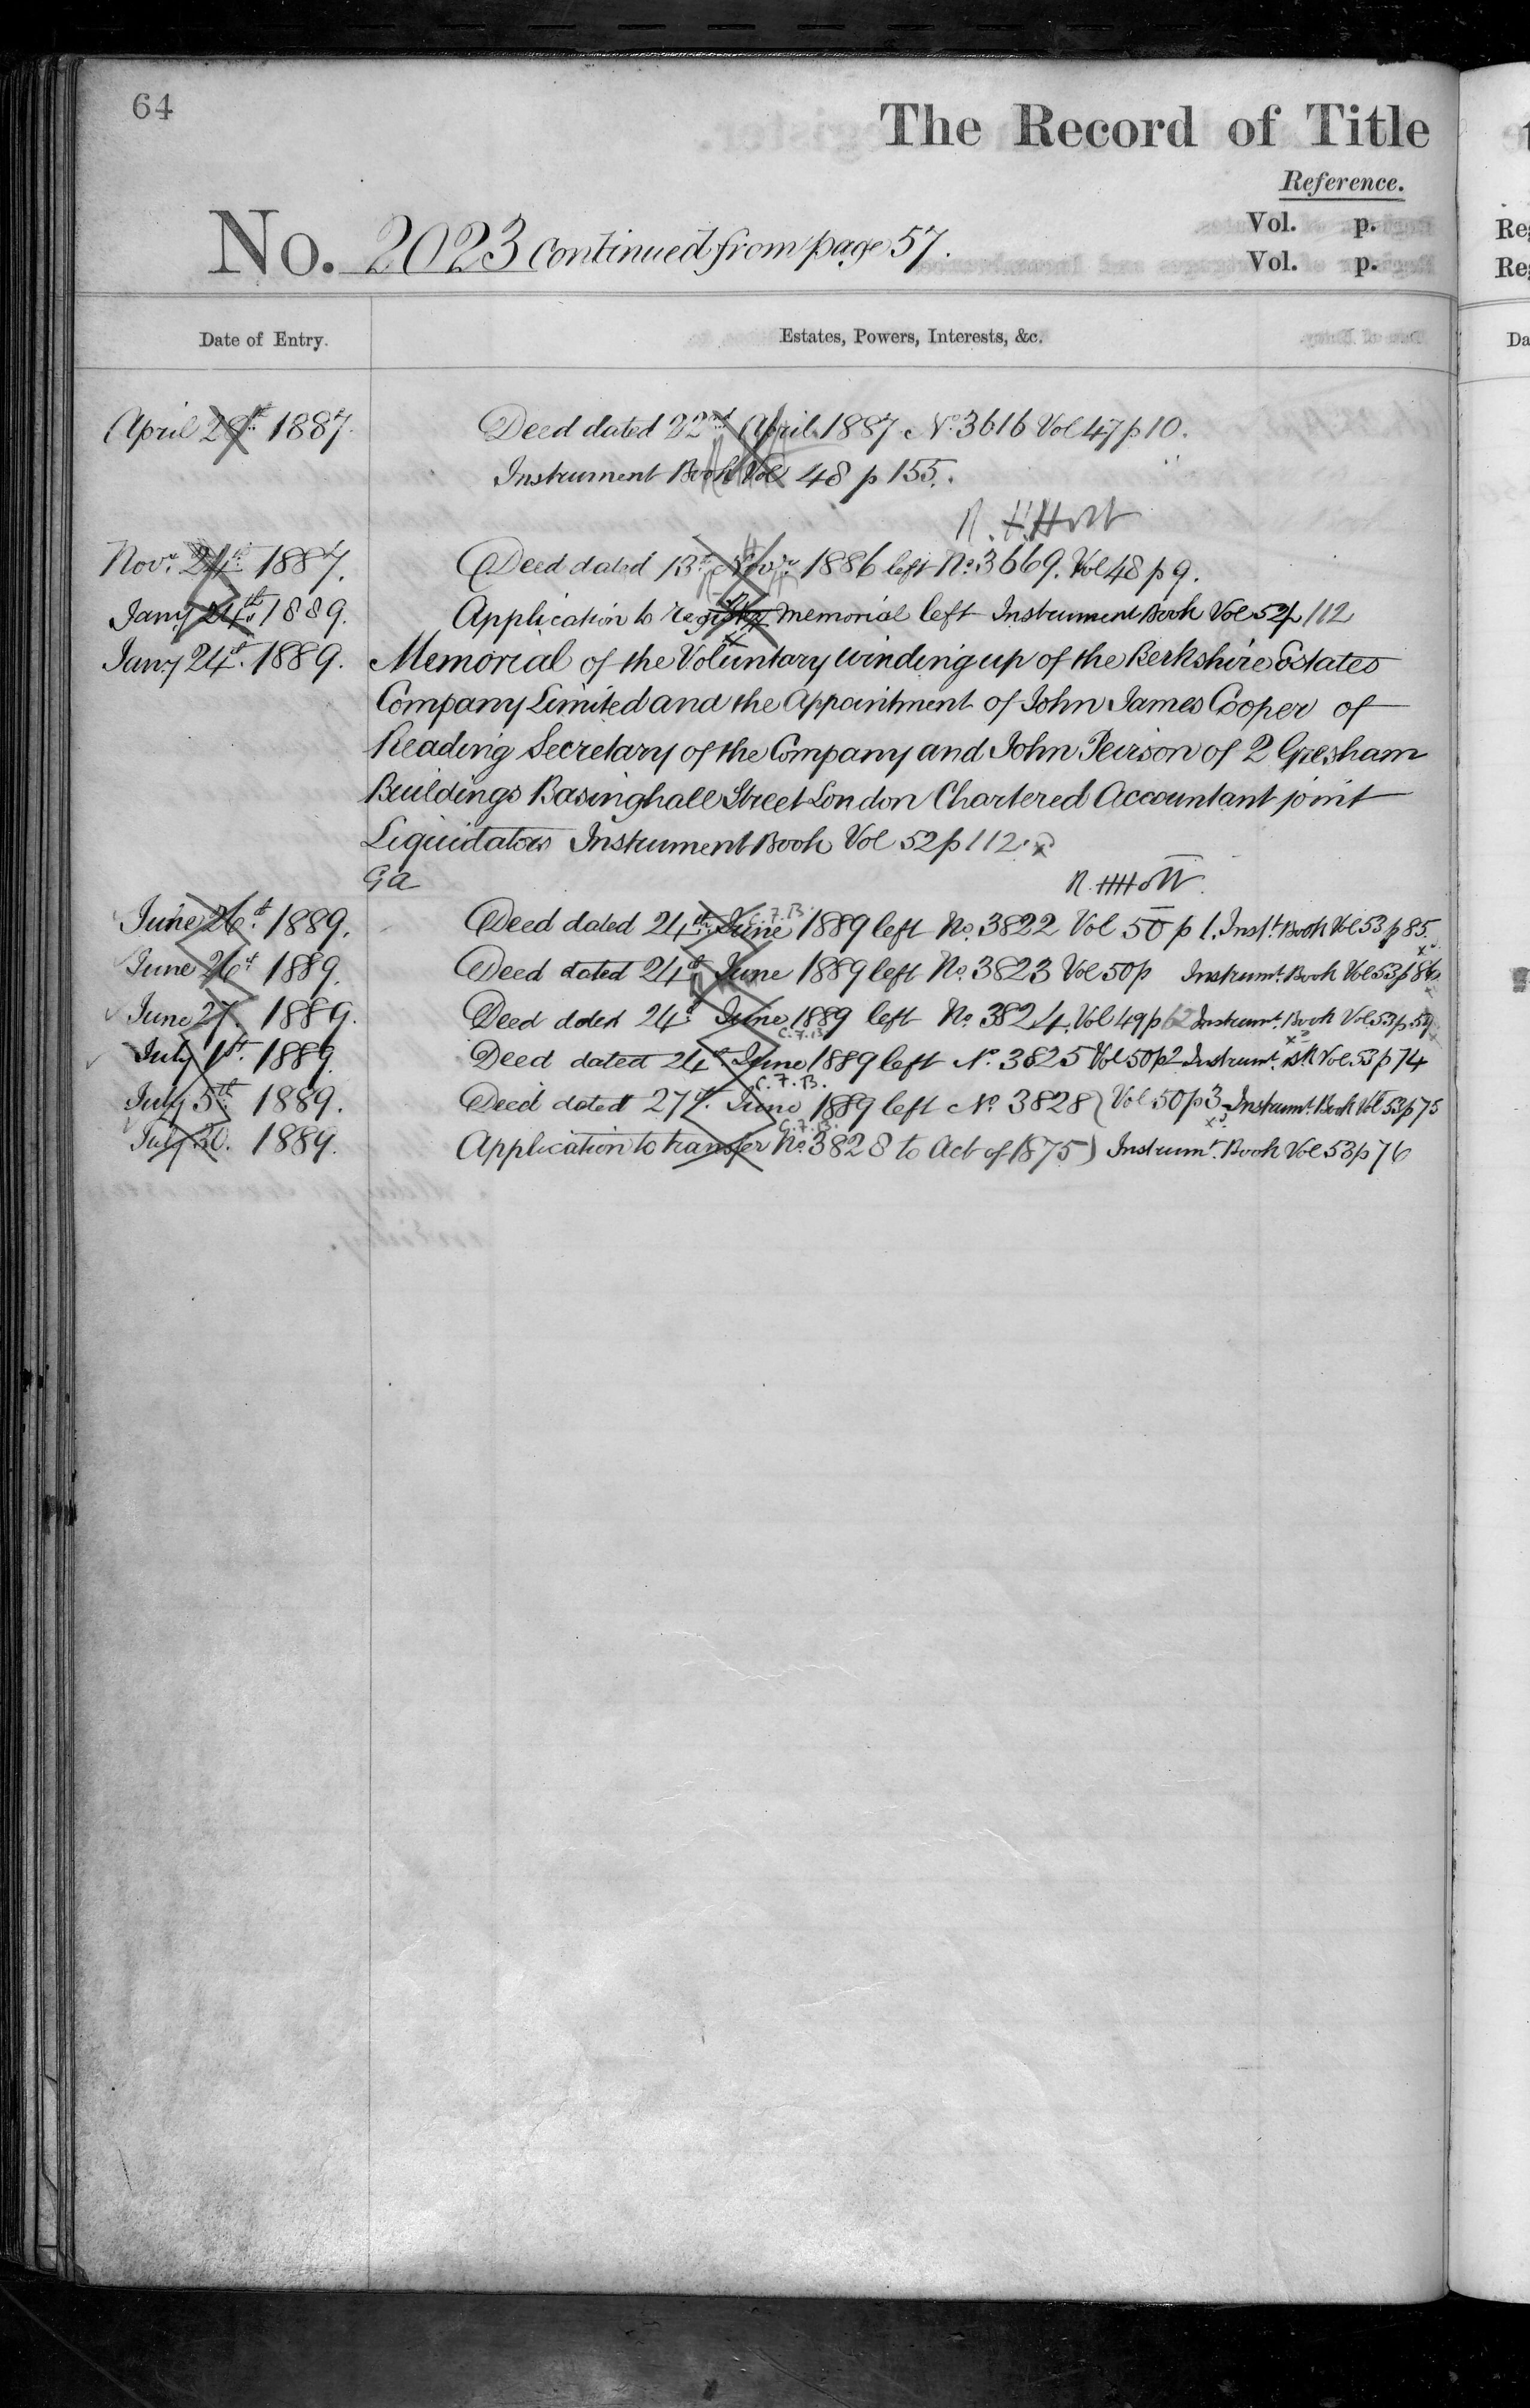 64
The Record of Title
Reference.
Vol. p.
No. 2023 Continued from page 57.
Vol. p.
Date of Entry. Estates, Powers, Interests, &c.
April 28th 1887. Deed dated 22nd April 1887 No. 3616 Vol 47 p 10.
Instrument Book Vol 48 p 155.
R. H. Holt
Novr. 24th 1887. Deed dated 13th Novr. 1886 left No. 3669. Vol 48 p 9.
Jany 24th 1889. Application to register memorial left Instrument Book Vol 52 p 112
Jany 24th. 1889. Memorial of the Voluntary winding up of the Berkshire Estates
Company Limited and the Appointment of John James Cooper of
Reading Secretary of the Company and John Peirson of 2 Gresham
Buildings Basinghall Street London Chartered Accountant joint
Liquidators Instrument Book Vol 52 p 112.
Ga R. H. Holt
C.F.B.
June 26th. 1889. Deed dated 24th. June 1889 left No. 3822 Vol 50 p 1. Inst. Book Vol 53 p 85.
June 26th 1889. Deed dated 24th June 1889 left No. 3823 Vol 50 p Instrumt. Book Vol 53 p 86
June 27. 1889. Deed dated 24th June 1889 left No. 3824. Vol 49 p 62 Instrumt. Book Vol 53 p 59
C.F.B.
July 1st. 1889. Deed dated 24th. June 1889 left No. 3825 Vol 50 p 2 Instrumt. Bk Vol 53 p 74
C.F.B.
July 5th. 1889. Deed dated 27th. June 1889 left No. 3828 Vol 50 p 3 Instrumt. Book Vol 53 p 75
C.F.B.
July 30. 1889. Application to transfer No. 3828 to Act of 1875) Instrumt. Book Vol 53 p 76